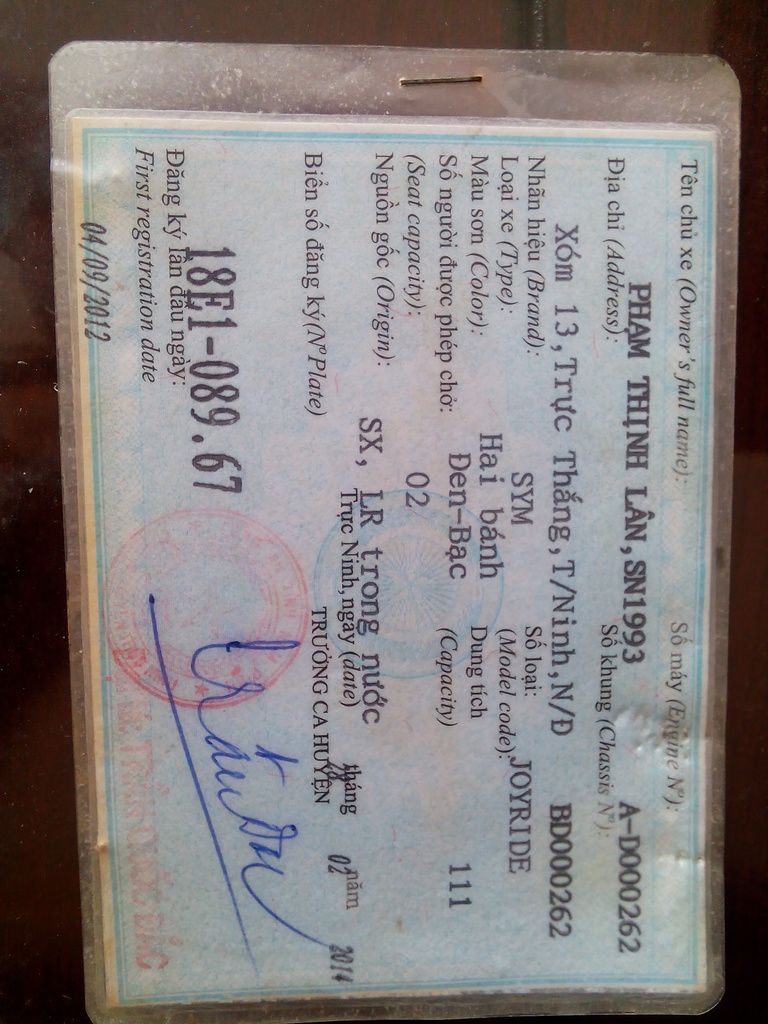 Tên chủ xe (Owner's full name): Số máy (Engine Nº):
PHẠM THỊNH LÂN,SN1993 A-D000262
Địa chỉ (Address): Số khung (Chassis Nº):
Xóm 13,Trực Thắng,T/Ninh,N/Đ BD000262
Nhãn hiệu (Brand): SYM Số loại: JOYRIDE
Loại xe (Type): Hai bánh (Model code):
Màu sơn (Color): Đen-Bạc Dung tích 111
Số người được phép chở: 02 (Capacity)
(Seat capacity):
Nguồn gốc (Origin): SX, LR trong nước
Trực Ninh, ngày (date) tháng 02 năm 2014
Biển số đăng ký (Nº Plate) TRƯỞNG CA HUYỆN
18E1-089.67
Đăng ký lần đầu ngày:
First registration date
04/09/2012